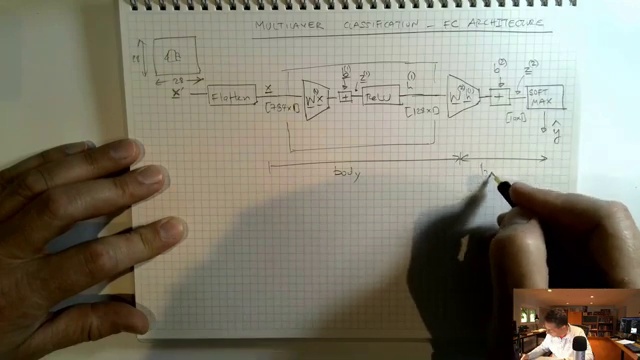 MULTILAYER CLASSIFICATION - FC ARCHITECTURE
28
28
X
Flatten
x
[784x1]
W(1) x
b(1)
+
z(1)
ReLU
h(1)
[128x1]
W(2) h(1)
b(2)
+
z(2)
SOFT
MAX
ŷ
body